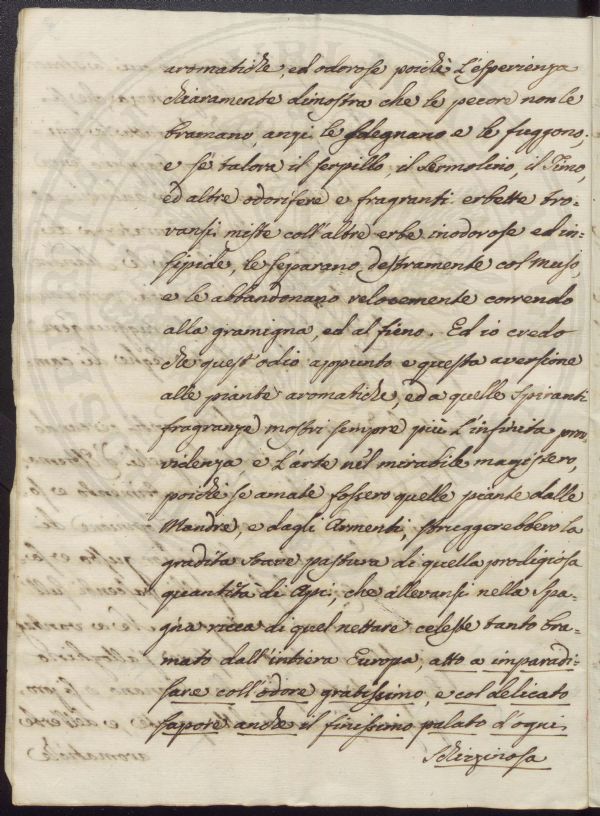 aromatiche, ed odorose poichè L'esperienza
chiaramente dimostra che le pecore non le
bramano, anzi le sdegnano e le fuggono,
e se talora il serpillo, il Sermolino, il Timo,
ed altre odorifere e fragranti erbette tro-
vansi miste coll'altre erbe inodorose ed in-
sipide, le separano destramente col muso,
e le abbandonano velocemente correndo
alla gramigna, ed al fieno. Ed io credo
che quest'odio appunto e questa aversione
alle piante aromatiche, ed a quelle spiranti
fragranze mostri sempre più L'infinita pro-
videnza, e L'arte nel mirabile magistero,
poichè se amate fossero quelle piante dalle
Mandre, e dagli Armenti, struggerebbero la
gradita soave pastura di quella prodigiosa
quantità di Api, che allevansi nella Spa-
gna ricca di quel nettare celeste tanto bra-
mato dall'intiera Europa, atto a imparadi-
sare coll'odore gratissimo, e col delicato
sapore anche il finissimo palato d'ogni
Schizzinosa
aromatiche